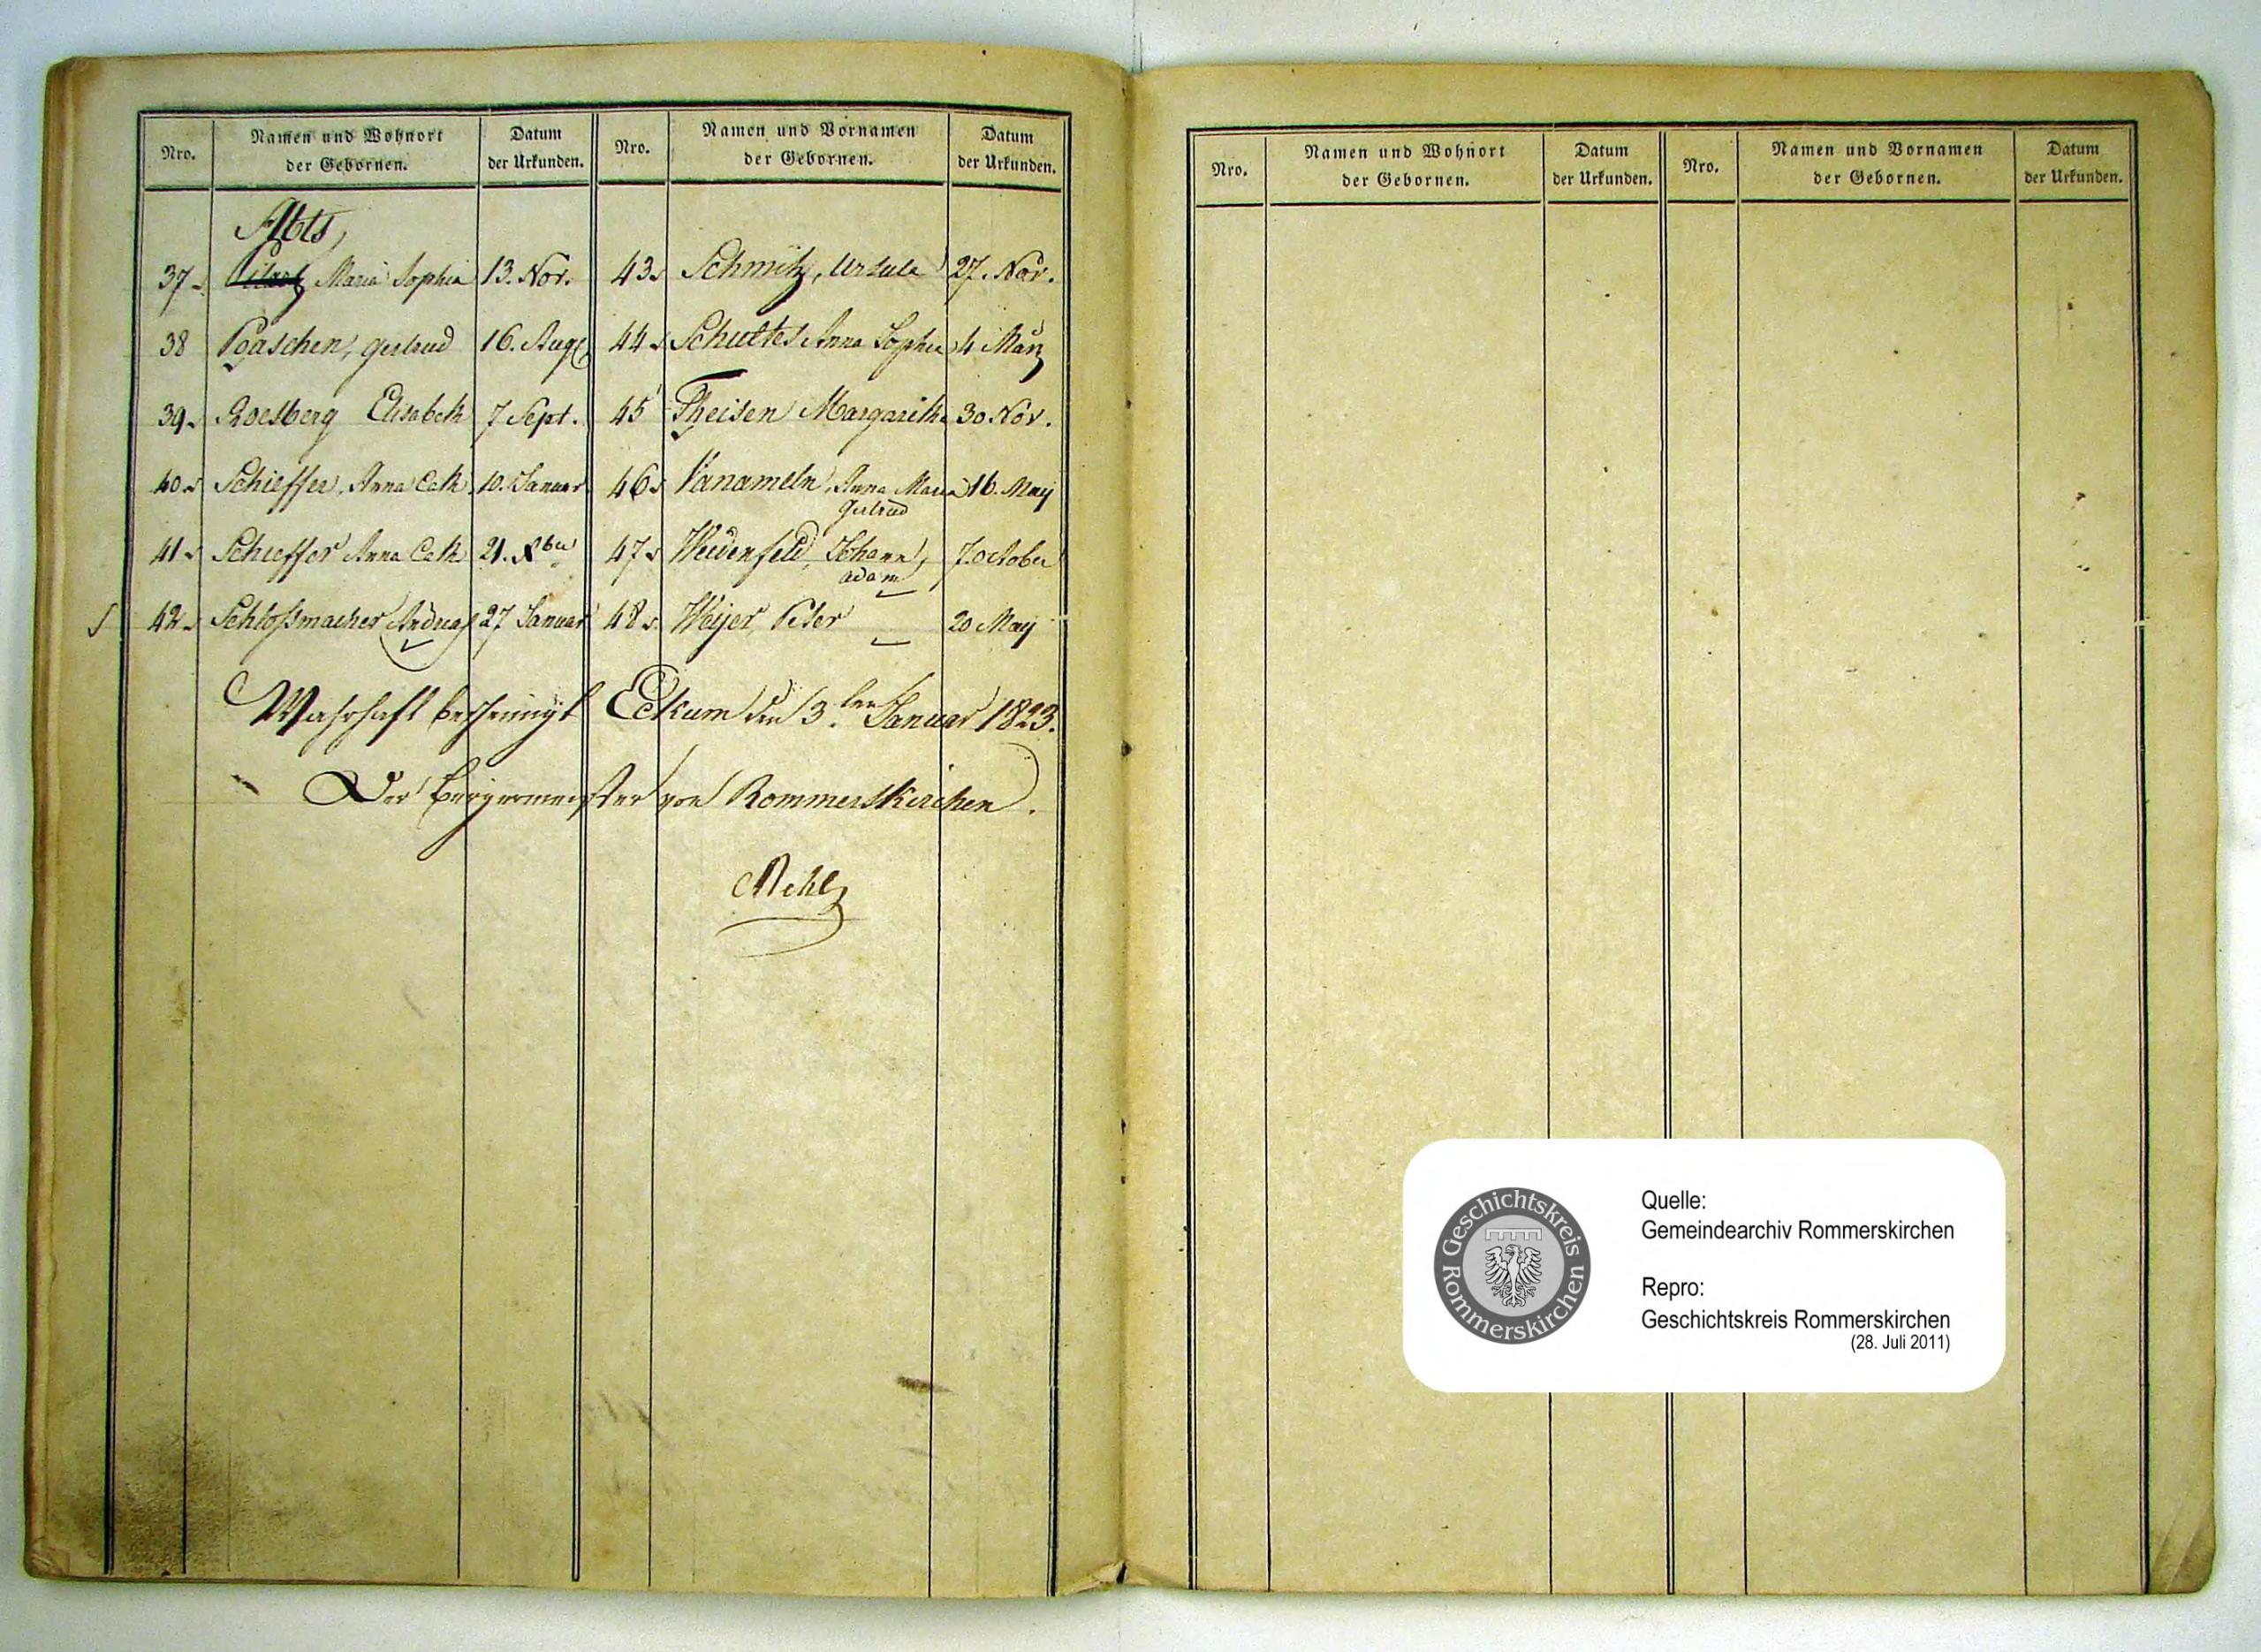 Nro. Namen und Wohnort der Gebornen. Datum der Urkunden. Nro. Namen und Vornamen der Gebornen. Datum der Urkunden.
Abts,
37 Maria Sophia 13. Nov.
38 Paaschen, Gertrud 16. Aug
39 Roesberg Elisabeth 7 Sept.
40 Schieffer, Anna Cath 10. Januar
41 Schieffer Anna Cath 21. Xber
42 Schloßmacher Andreas 27 Januar
43 Schmitz, Ursula 27. Nov.
44 Schultes Anna Sophia 4 März
45 Theisen Margaretha 30 Nov.
46 Vanameln, Anna Maria 16. May
Gertrud
47 Weidenfeld, Johann, 7. october
adam
48 Weyer Peter 20 May
Wahrhaft bescheinigt Eckum den 3.ten Januar 1823.
Der Bürgermeister von Rommerskirchen.
Nro. Namen und Wohnort der Gebornen. Datum der Urkunden. Nro. Namen und Vornamen der Gebornen. Datum der Urkunden.
Geschichtskreis Rommerskirchen
Quelle:
Gemeindearchiv Rommerskirchen
Repro:
Geschichtskreis Rommerskirchen
(28. Juli 2011)